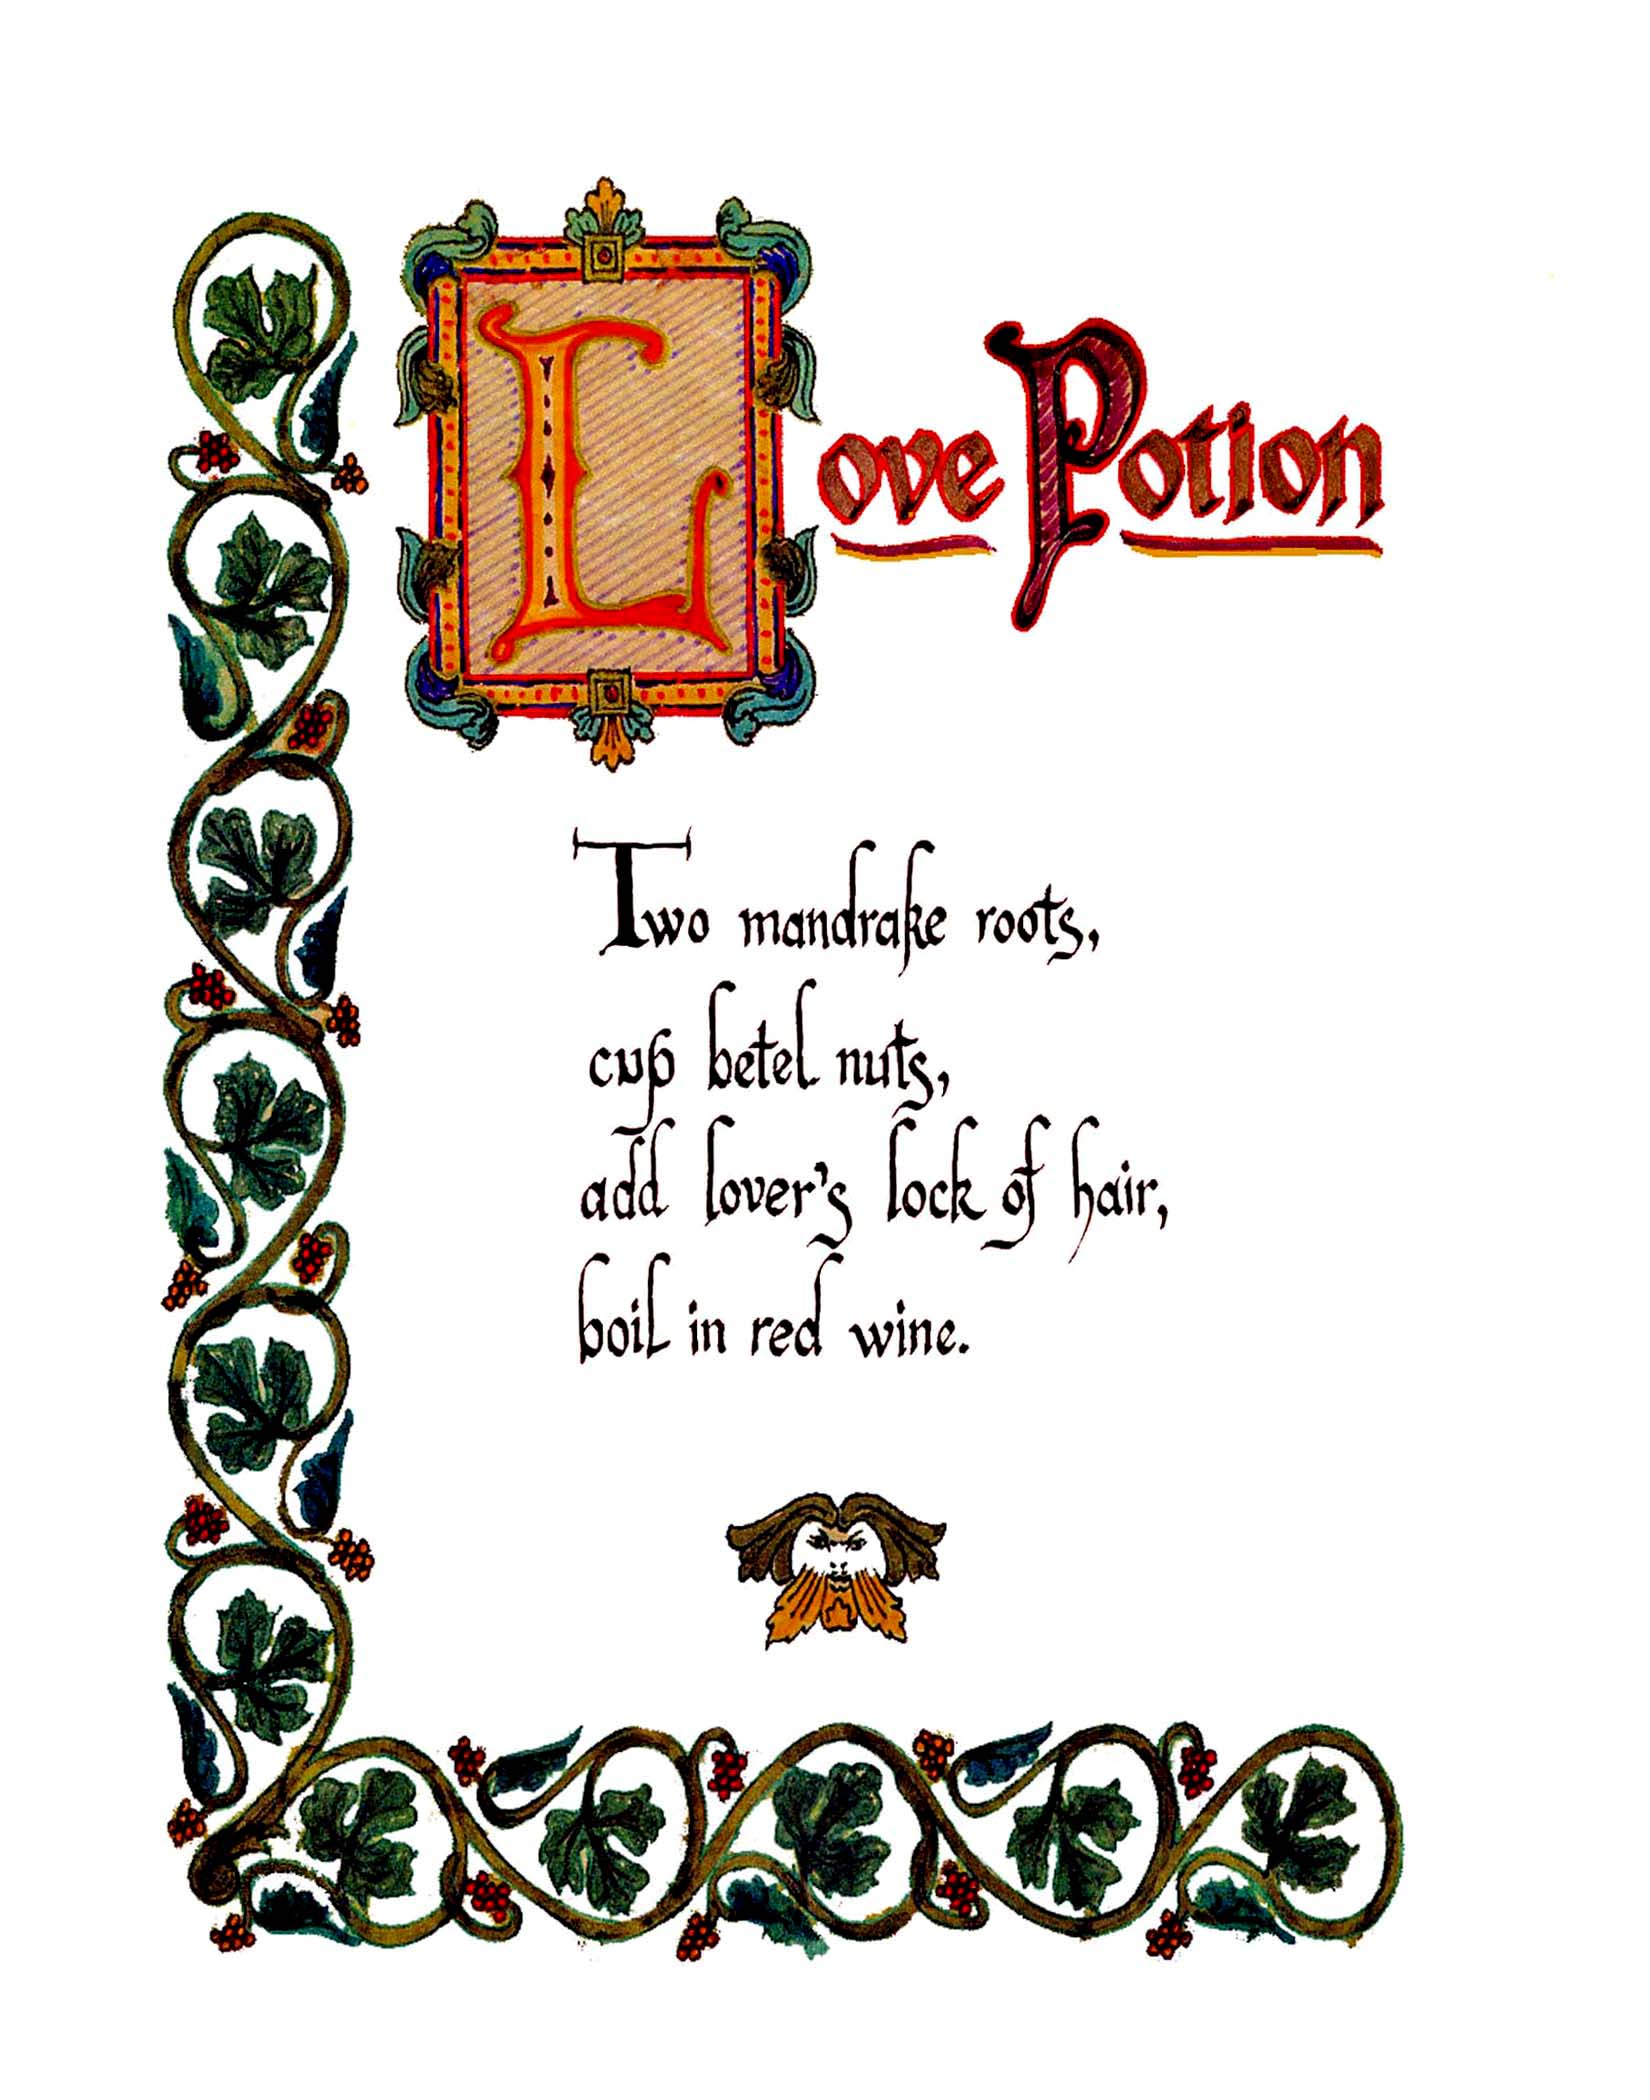 Love Potion
Two mandrake roots,
cup betel nuts,
add lover's lock of hair,
boil in red wine.